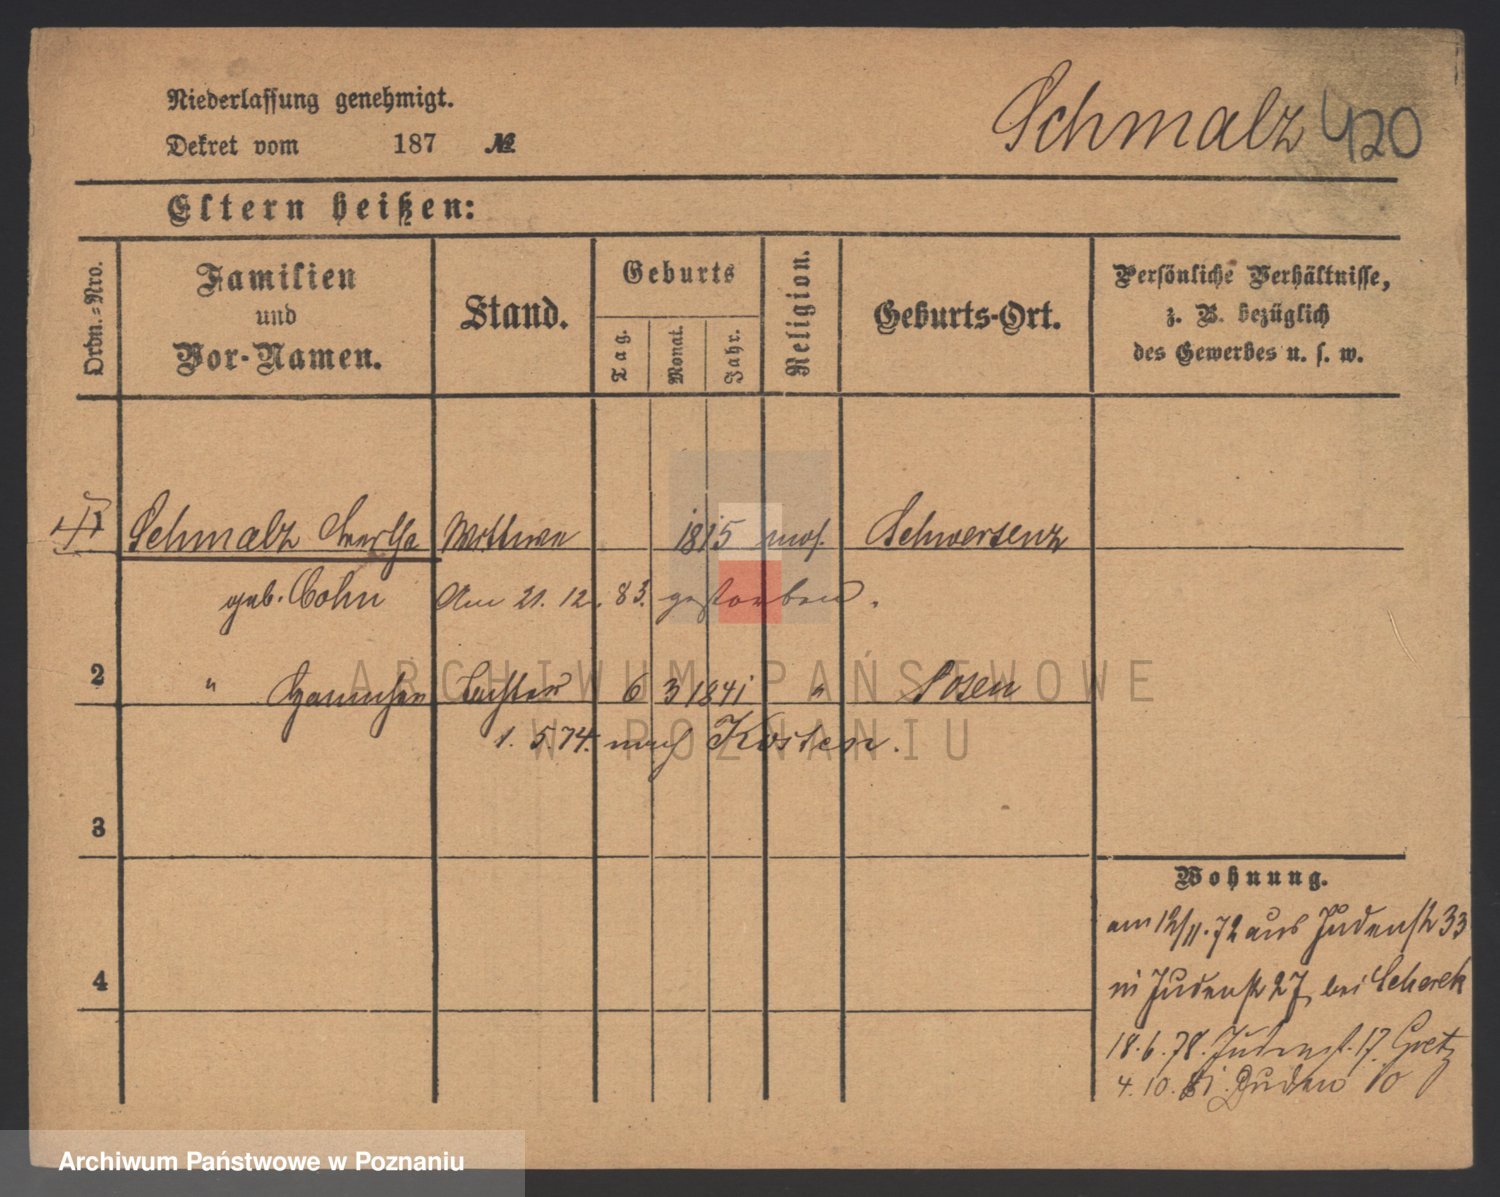 Niederlassung genehmigt.
Dekret vom 187 №
Schmalz 420
Eltern heißen:
Ordn.-Nro.
Familien
und
Vor-Namen.
Stand.
Geburts
Tag.
Monat.
Jahr.
Religion.
Geburts-Ort.
Persönliche Verhältnisse,
z. B. bezüglich
des Gewerbes u. s. w.
1 Schmalz Wittwe 1815 mos. Schwersenz
geb. Cohn Am 21. 12. 83. gestorben.
2 " Hannchen Tochter 6 3 1841 " Posen
1. 5. 74. nach Kosten.
3
4
Wohnung.
am 12/11. 72 aus Judenstr 33
in Judenstr 27, bei Scherek
18. 6. 78. Judenst. 17. Gretz
4. 10. 81. Juden 10
ARCHIWUM PAŃSTWOWE
W POZNANIU
Archiwum Państwowe w Poznaniu